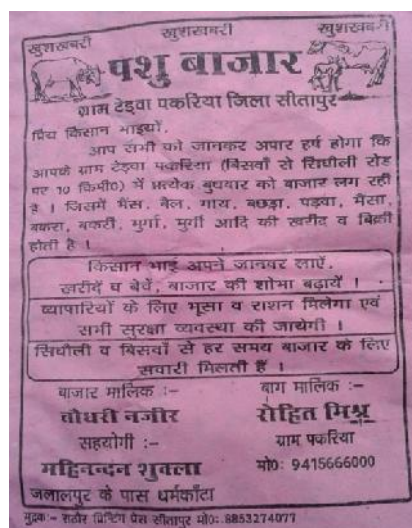 खुशखबरी खुशखबरी खुशखबरी
पशु बाजार
ग्राम टेड़वा पकरिया जिला सीतापुर
प्रिय किसान भाइयों,
आप सभी को जानकर अपार हर्ष होगा कि
आपके ग्राम टेड़वा पकरिया (बिसवाँ से सिधौली रोड
पर 10 किमी0) में प्रत्येक बुधवार को बाजार लग रही
है । जिसमें भैंस, बैल, गाय, बछड़ा, पड़वा, भैंसा,
बकरा, बकरी, मुर्गा, मुर्गी आदि की खरीद व बिक्री
होती है ।
किसान भाई अपने जानवर लाऐं,
खरीदें व बेचें, बाजार की शोभा बढ़ायें ।
व्यापारियों के लिए भूसा व राशन मिलेगा एवं
सभी सुरक्षा व्यवस्था की जायेगी ।
सिधौली व बिसवाँ से हर समय बाजार के लिए
सवारी मिलती हैं ।
बाजार मालिक :- बाग मालिक :-
चौधरी नजीर रोहित मिश्र
सहयोगी :- ग्राम पकरिया
महिनन्दन शुक्ला मो0: 9415666000
जलालपुर के पास धर्मकाँटा
मुद्रक:- राठौर प्रिन्टिंग प्रेस सीतापुर मो0:-8853274077